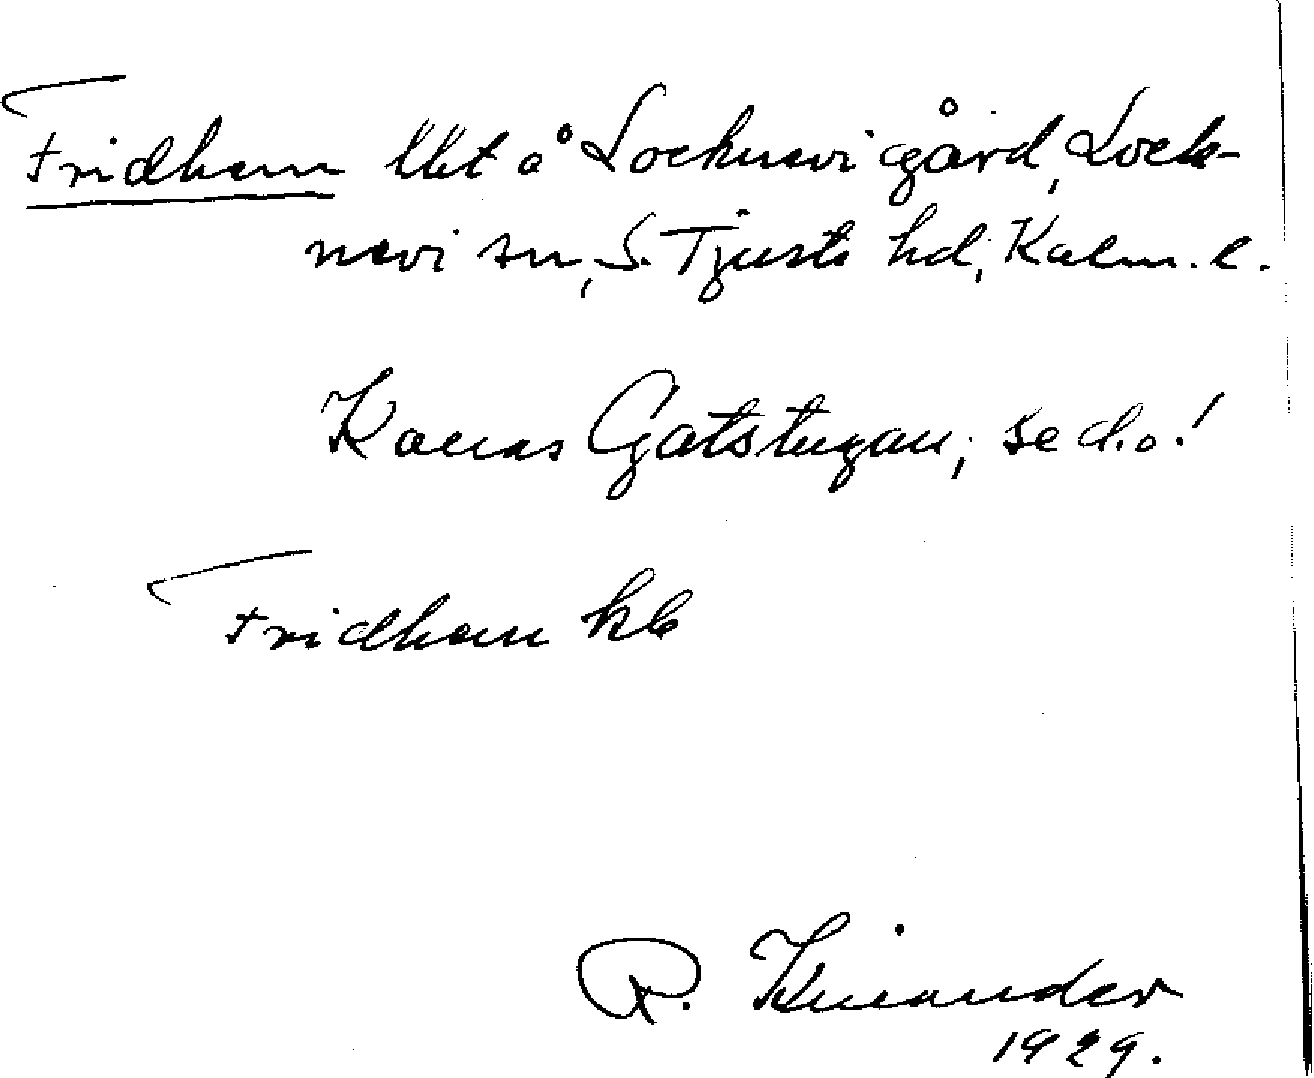 Fridhem lht å Locknevi gård, Lock-
nevi sn, S. Tjusts hd, Kalm. l.
Kallas Gatstugan; se d.o.!
Fridhem hb
R. Kinander
1929.